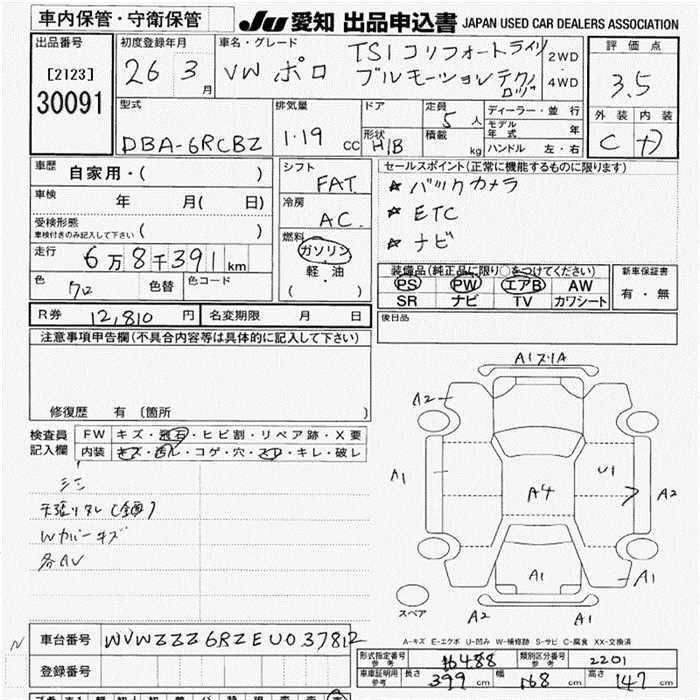 車内保管・守衛保管
JU 愛知 出品申込書 JAPAN USED CAR DEALERS ASSOCIATION
出品番号
[2123]
30091
初度登録年月
26 3月
車名・グレード
VW ポロ
TSI コンフォートライン
ブルーモーションテクノロジー
2WD
・
4WD
評価点
3.5
外装 内装
C
型式
DBA-6RCBZ
排気量
1.19 cc
ドア
形状
H/B
定員
5人
積載
kg
ディーラー・並行
モデル年式 年
ハンドル 左・右
車歴
自家用・( )
車検
年 月( 日)
受検形態
車検付きのみ記入して下さい ( )
走行
6万8千391km
色
色替
色コード
シフト
FAT
冷房
AC
燃料
ガソリン
・
軽・油
( )
セールスポイント(正常に機能するものに限ります)
☆ バックカメラ
☆ ETC
☆ ナビ
装備品(純正品に限り○をつけてください)
PS PW エアB AW
SR ナビ TV カワシート
新車保証書
有・無
R券 12,810円
名変期限 月 日
後日品
注意事項申告欄(不具合内容等は具体的に記入して下さい)
修復歴 有 [箇所 ]
検査員
記入欄
FW キズ・飛石・ヒビ割・リペア跡・X要
内装 キズ・汚レ・コゲ・穴・スレ・キレ・破レ
Wカバーキズ
A1 ズリA
A2
A1
U1
A4
A2
A1
A1
A2
A1
スペア
A-キズ E-エクボ U-凹み W-補修跡 S-サビ C-腐食 XX-交換済
N 車台番号 WVWZZZ6RZEU037812
登録番号
形式指定番号
参考
16488
類別区分番号
参考
2201
車庫証明用
参考
長さ 399cm 幅 168cm 高さ 147cm